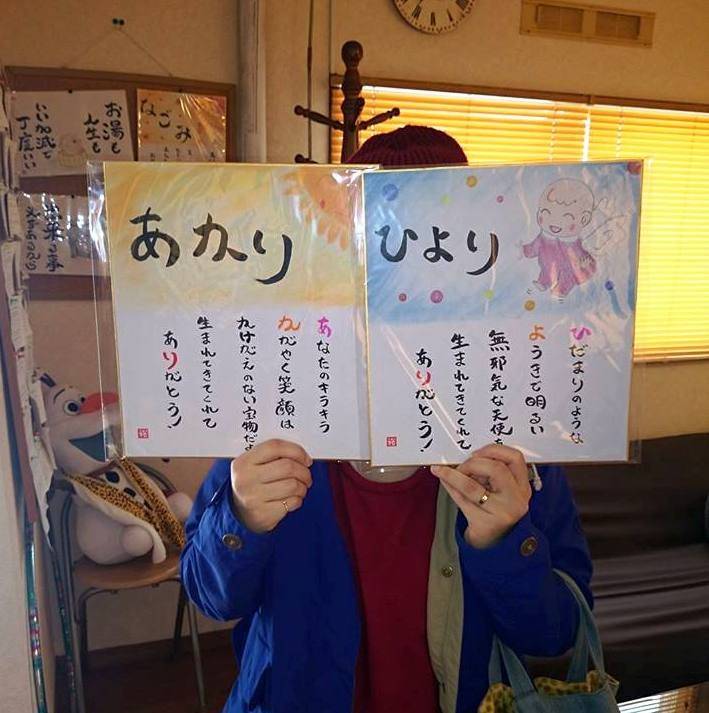 あかり
あなたのキラキラ
かがやく笑顔は
かけがえのない宝物だよ
生まれてきてくれて
ありがとう!
ひより
ひだまりのような
ようきで明るい
無邪気な天使
生まれてきてくれて
ありがとう!
お湯も
人生も
いい加減で
丁度いい
なごみ